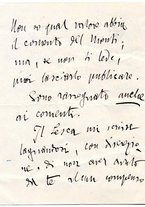 Non so qual valore abbia
il comento del Monti;
ma, se non ti lede,
puoi lasciarlo publicare.
Sono rassegnato anche
ai comenti.
Il Lesca mi scrisse
lagnandosi, con
ne, di non aver avuto
da te alcun compenso